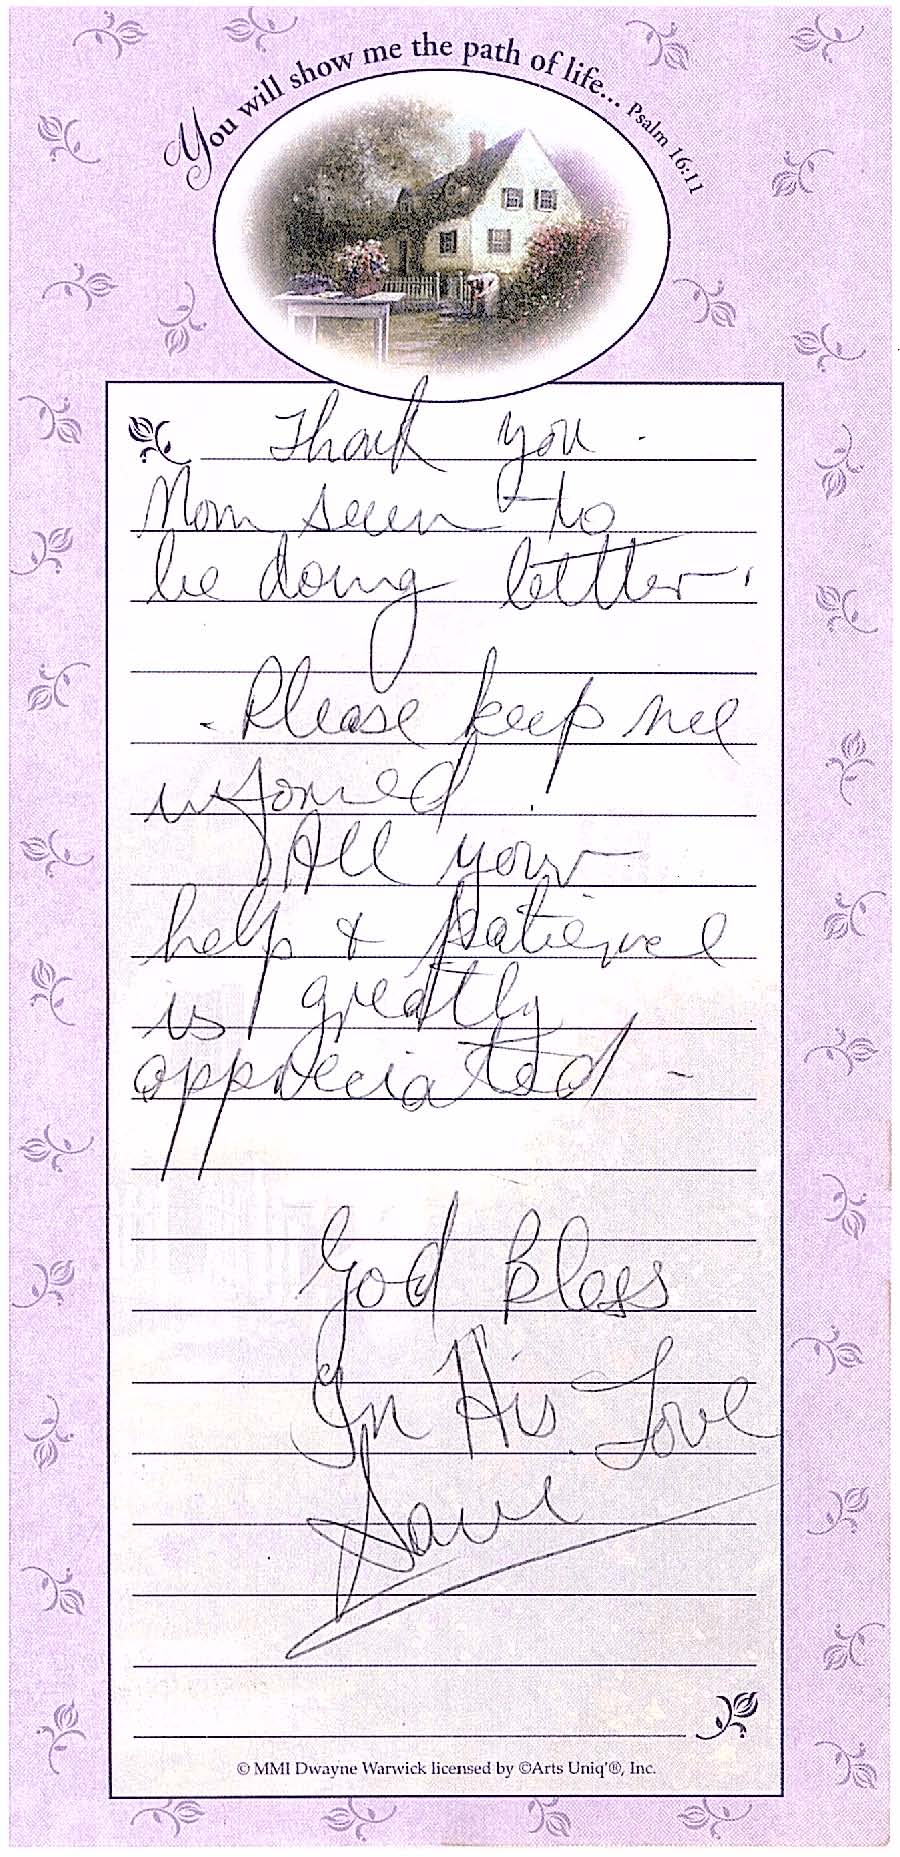 You will show me the path of life... Psalm 16:11
Thank you.
Mom seem to
be doing better.
Please keep me
infomed
All your
help & patience
is greatly
appreciated -
God Bless
In His Love
Dave
© MMI Dwayne Warwick licensed by ©Arts Uniq'®, Inc.